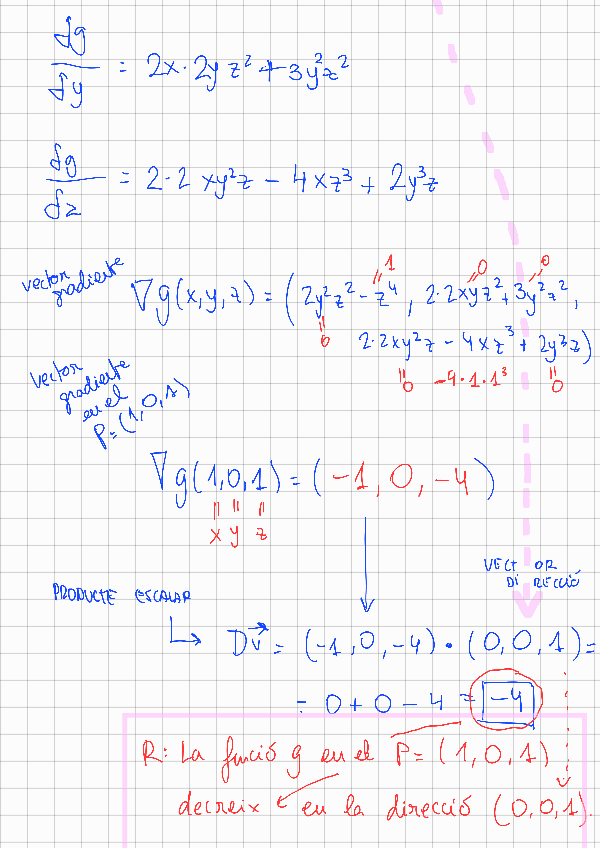 ∂g/∂y = 2x·2yz² + 3y²z²
∂g/∂z = 2·2xy²z − 4xz³ + 2y³z
vector gradiente
∇g(x,y,z) = (2y²z² − z⁴, 2·2xyz² + 3y²z²,
"1 "0 "0
2·2xy²z − 4xz³ + 2y³z)
"0 "0 −4·1·1³ "0
vector gradiente en el P=(1,0,1)
∇g(1,0,1) = (−1, 0, −4)
" " "
x y z
VECTOR DIRECCIÓ
PRODUCTE ESCALAR
↳ Dv⃗ = (−1,0,−4) · (0,0,1) =
= 0+0−4 = −4
R: La funció g en el P=(1,0,1)
decreix en la direcció (0,0,1).